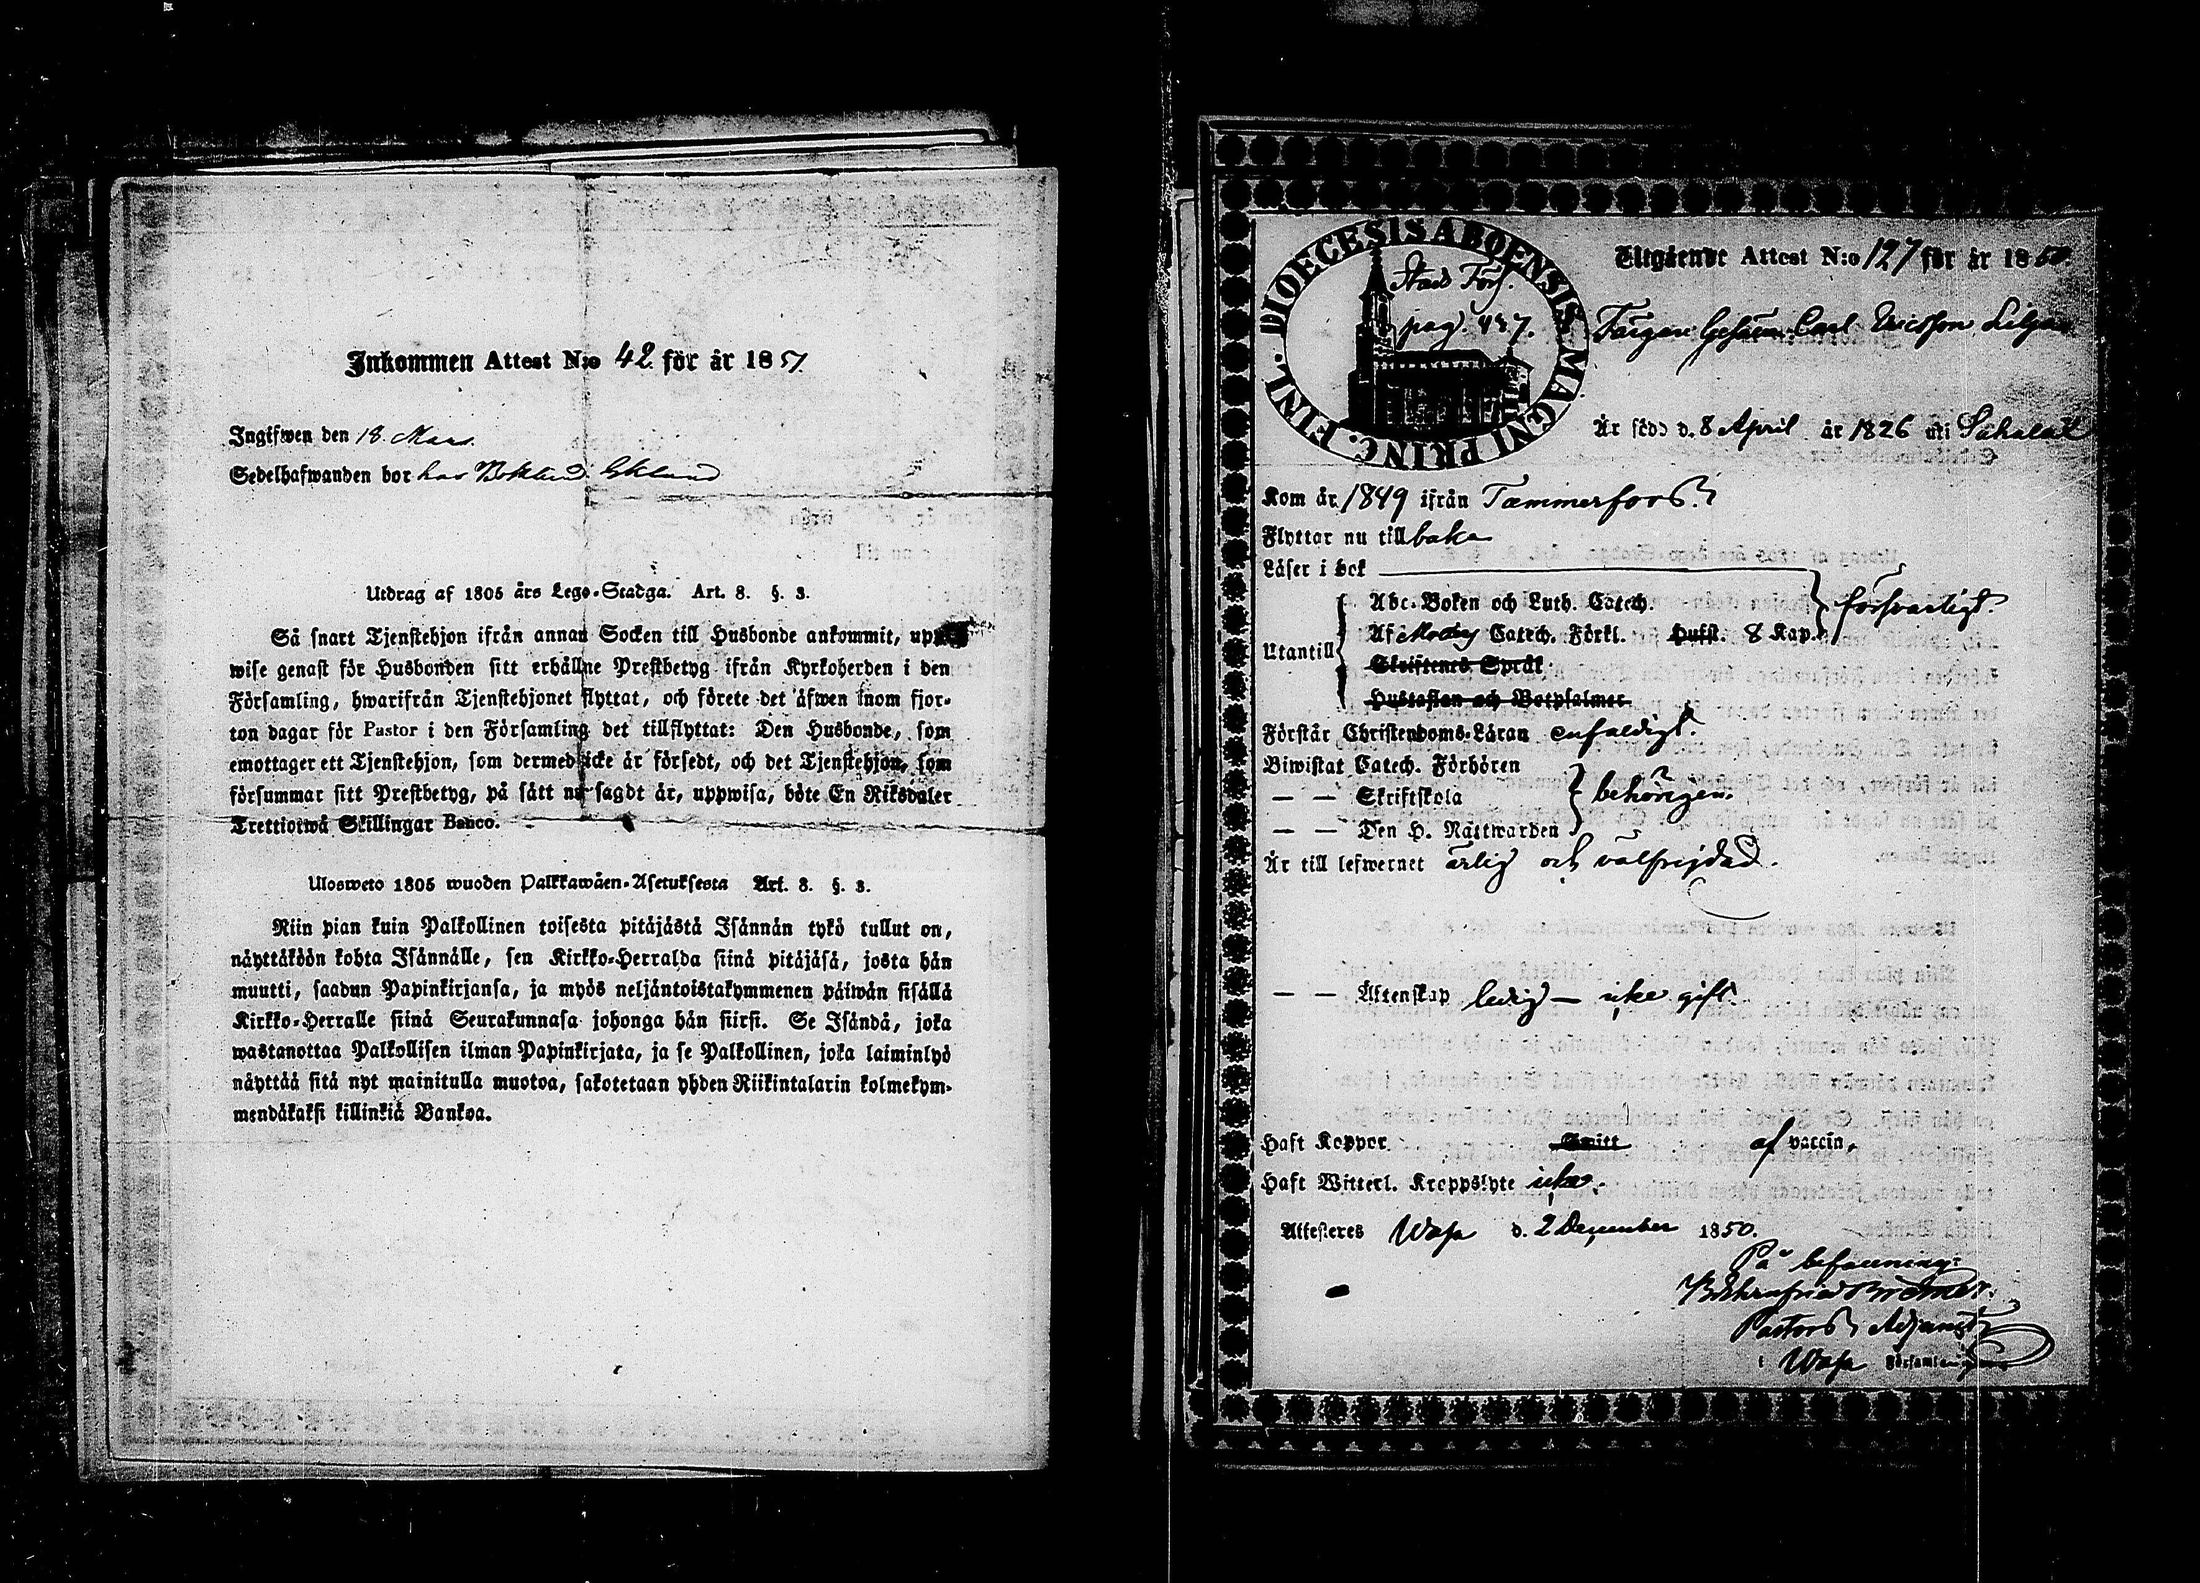 Inkommen Attest N:o 42 för år 1851
Ingifwen den 18 Mars
Sedelhafwanden bor hos Eklund
Utdrag af 1805 års Lego-Stadga. Art. 8. §. 3.
Så snart Tjenstehjon ifrån annan Socken till Husbonde ankommit, upp
wise genast för Husbonden sitt erhållne Prestbetyg ifrån Kyrkoherden i den
Församling, hwarifrån Tjenstehjonet flyttat, och förete det äfwen inom fjor-
ton dagar för Pastor i den Församling det tillflyttat: Den Husbonde, som
emottager ett Tjenstehjon, som dermed icke är försedt, och det Tjenstehjon, som
försummar sitt Prestbetyg, på sätt nu sagdt är, uppwisa, böte En Riksdaler
Trettiotwå Skillingar Banco.
Ulosweto 1805 wuoden Palkkawäen-Asetuksesta Art. 8. §. 3.
Niin pian kuin Palkollinen toisesta pitäjästä Isännän tykö tullut on,
näyttäköön kohta Isännälle, sen Kirkko-Herralda siinä pitäjäsä, josta hän
muutti, saadun Papinkirjansa, ja myös neljäntoistakymmenen päiwän sisällä
Kirkko-Herralle siinä Seurakunnasa johonga hän siirsi. Se Isändä, joka
wastanottaa Palkollisen ilman Papinkirjata, ja se Palkollinen, joka laiminlyö
näyttää sitä nyt mainitulla muotoa, sakotetaan yhden Riikintalarin kolmekym-
mendäkaksi killinkiä Bankoa.
DIOECESIS ABOENSIS MAGNI PRINC. FINL.
Stads Förs.
pag. 437.
Utgående Attest N:o 127 för år 1850
Färgare Gesällen Carl Ericsson Liljan
Är född d. 8 April år 1826 uti Sahalax
Kom år 1849 ifrån Tammerfors.
Flyttar nu tillbaka
Läser i bok
försvarligt.
Utantill
Abc-Boken och Luth. Catech.
Af Catech. Förkl. Husst. 8 Kap.
Skriftenes Språk
Hustaflan och Botpsalmer
Förstår Christendoms-Läran enfaldigt.
Biwistat Catech. Förhören
— — Skriftskola behörigen.
— — Den H. Nattwarden
Är till lefwernet ärlig och välfrejdad.
— — Äktenskap ledig — icke gift.
Haft Koppor Smitt af vaccin.
Haft Witterl. Kroppslyte icke.
Attesteras Wasa d. 2 December 1850.
På befallning:
Pastors Adjunct
i Wasa Församling